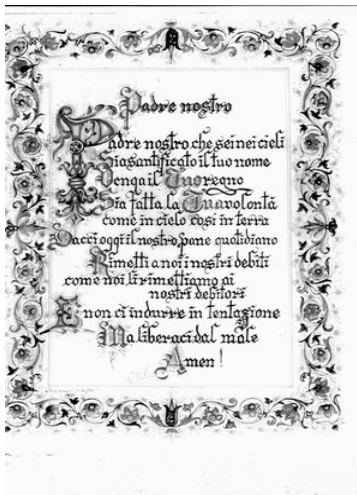 Padre nostro
Padre nostro, che sei nei cieli
Sia santificato il tuo nome
Venga il Tuo regno
Sia fatta la Tua volontà
come in cielo così in terra
Dacci oggi il nostro pane quotidiano
Rimetti a noi i nostri debiti
come noi li rimettiamo ai
nostri debitori
E non ci indurre in tentazione
Ma liberaci dal male
Amen!